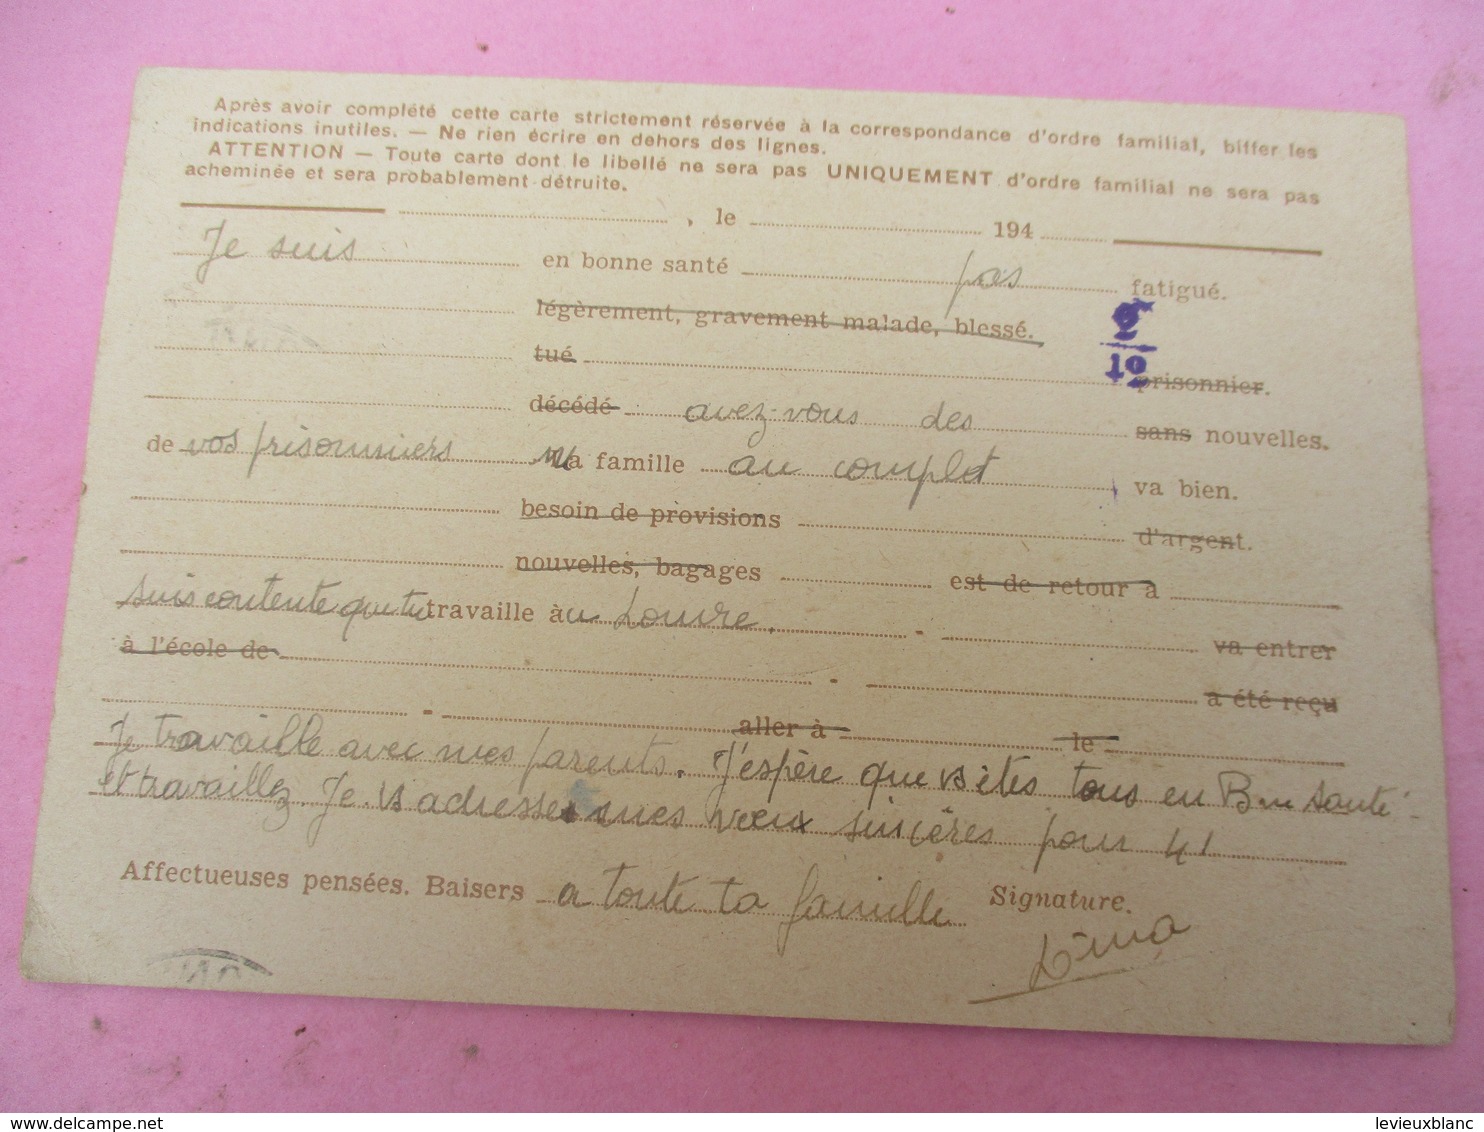 Après avoir complété cette carte strictement réservée à la correspondance d'ordre familial, biffer les
indications inutiles. — Ne rien écrire en dehors des lignes.
ATTENTION — Toute carte dont le libellé ne sera pas UNIQUEMENT d'ordre familial ne sera pas
acheminée et sera probablement détruite.
, le 194
Je suis en bonne santé pas fatigué.
légèrement, gravement malade, blessé.
tué prisonnier.
décédé avez-vous des sans nouvelles.
de vos prisonniers Ma famille au complet va bien.
besoin de provisions d'argent.
nouvelles, bagages est de retour à
suis contente que tu travaille àu Louvre. - va entrer
à l'école de - a été reçu
- aller à le
Je travaille avec mes parents. J'espère que vs êtes tous en Bne santé
et travaillez. Je vs adresse mes vœux sincères pour 41
Affectueuses pensées. Baisers a toute ta famille Signature.
2
10
delcampe.net
levieuxblanc